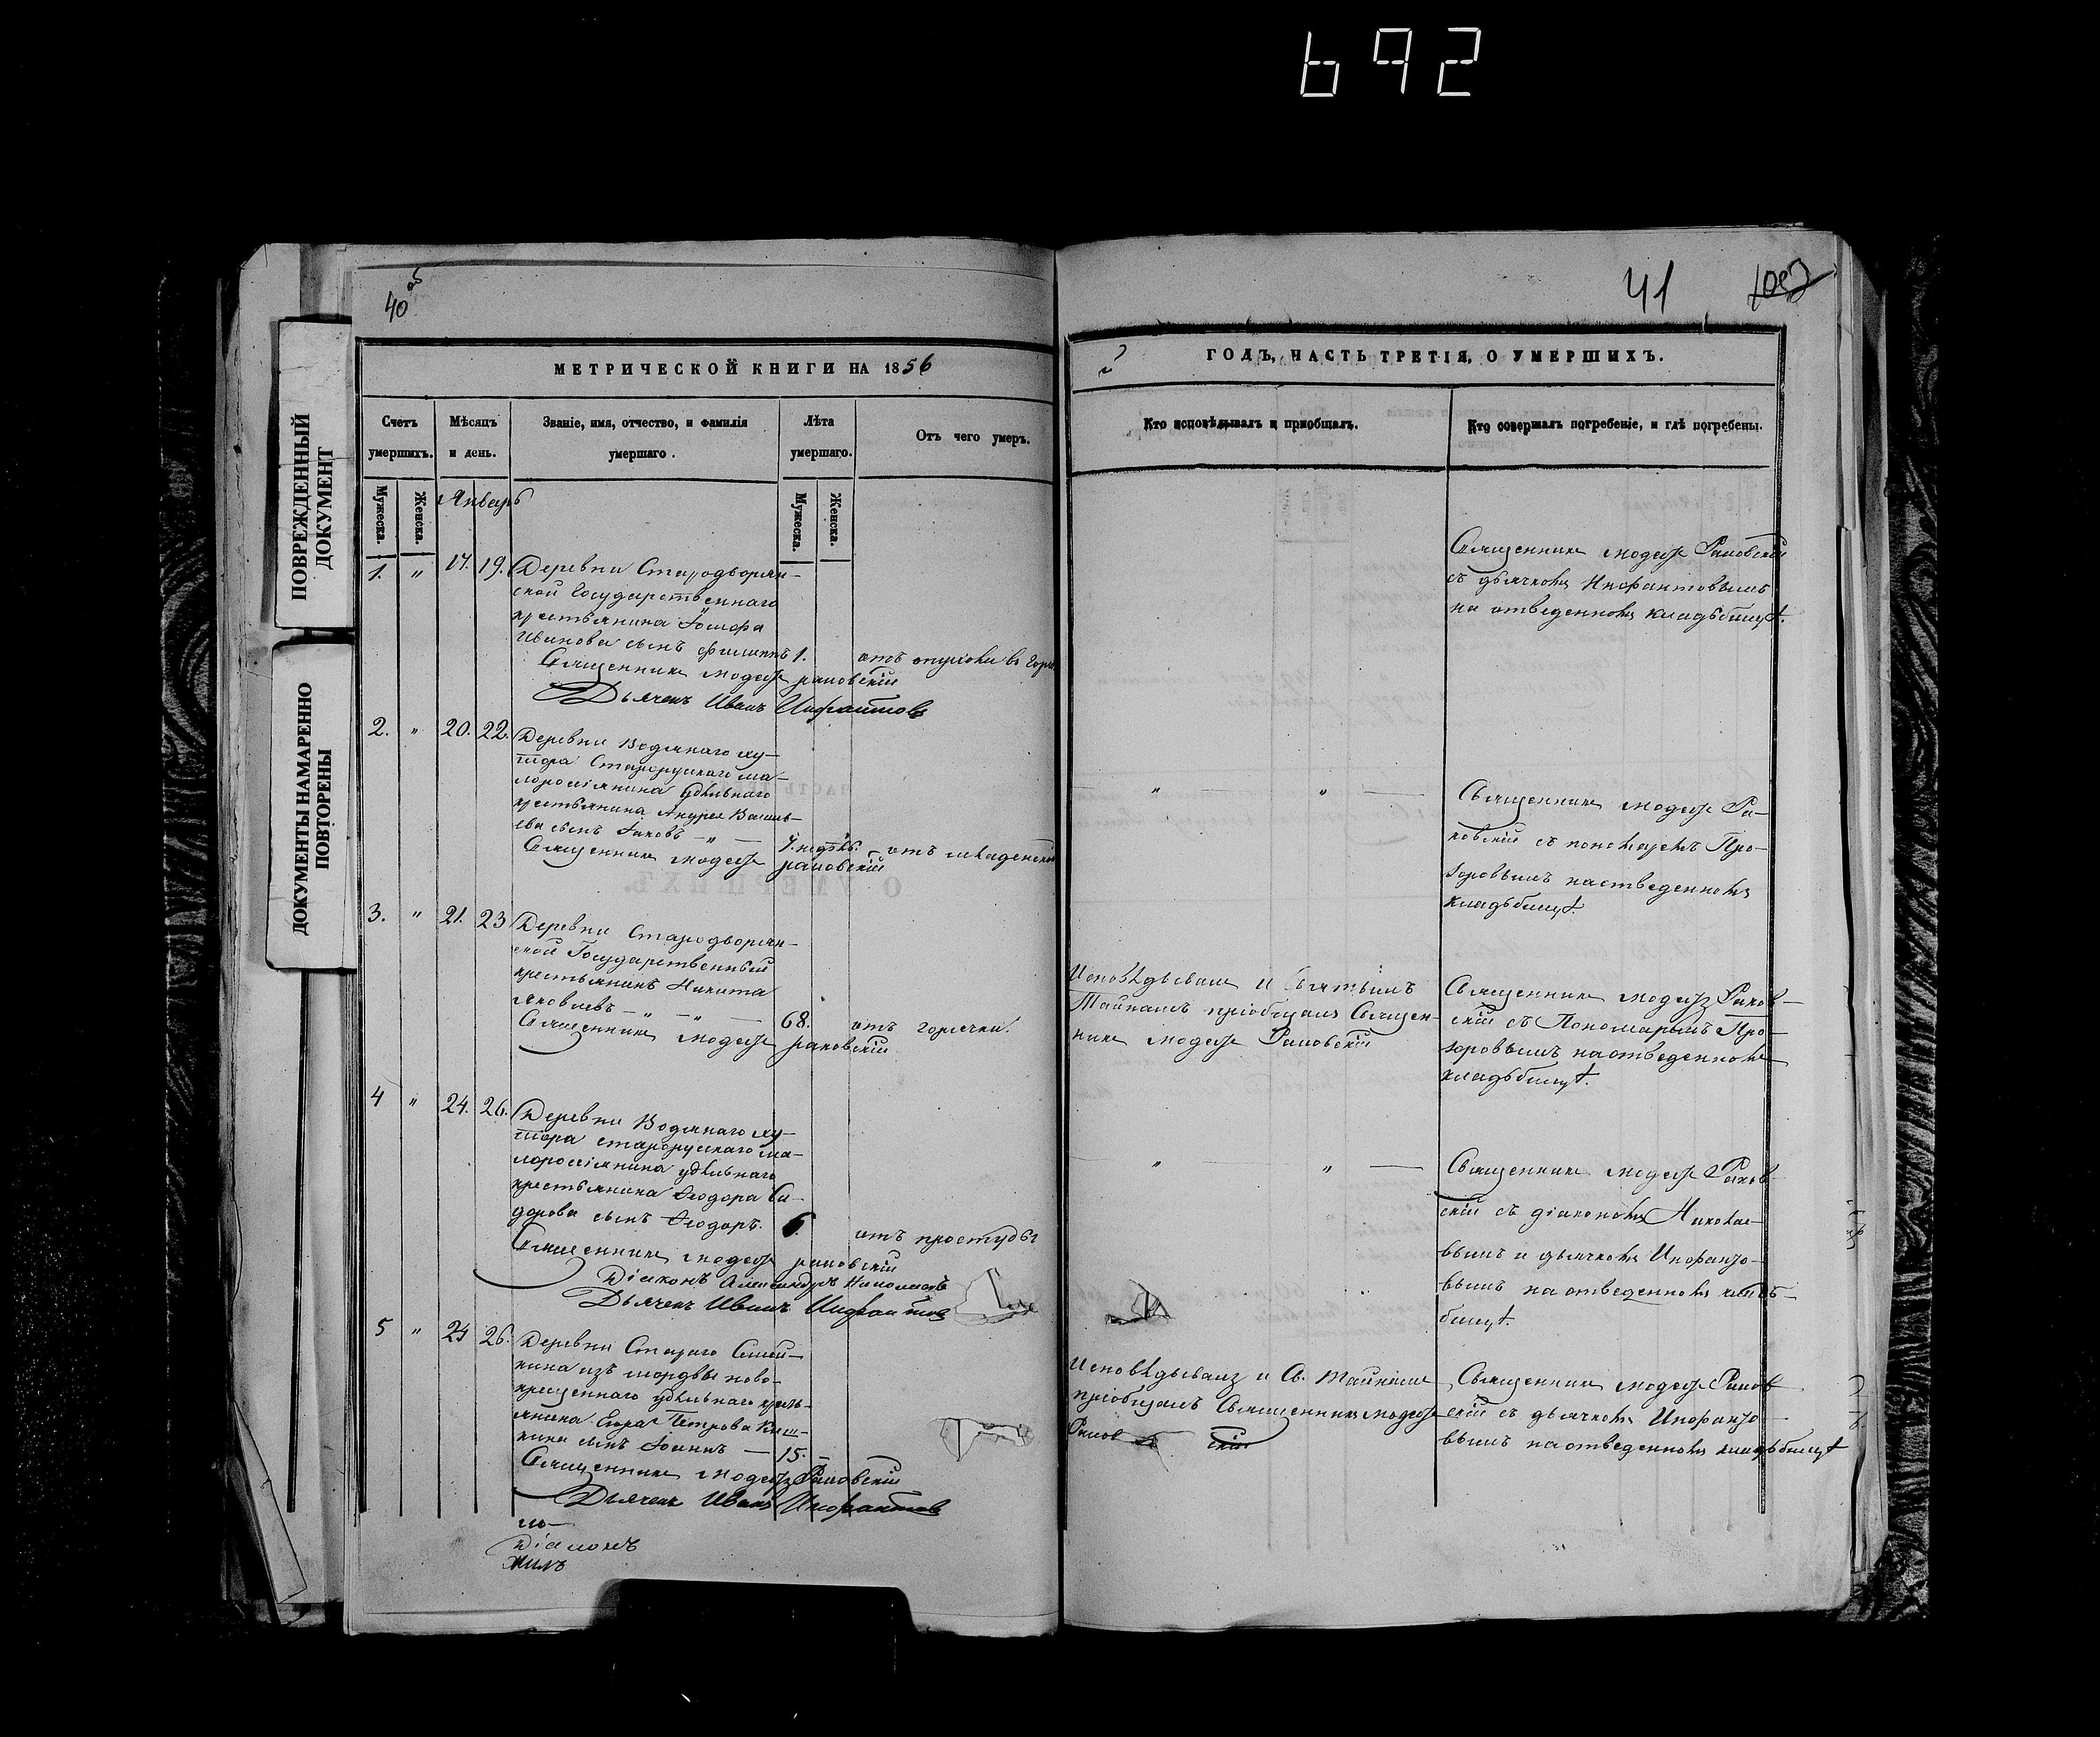 692
ПОВРЕЖДЕННЫЙ
ДОКУМЕНТ
ДОКУМЕНТЫ НАМАРЕННО
ПОВТОРЕНЫ
40 об
МЕТРИЧЕСКОЙ КНИГИ НА 1856
Счетъ умершихъ.
Мѣсяцъ и день.
Званіе, имя, отчество, и фамилія умершаго.
Лѣта умершаго.
Отъ чего умеръ.
Мужеска.
Женска.
Январь
Мужеска.
Женска.
1. " 17. 19. Деревни Стародворян-
ской Государственнаго
крестьянина Іосифа
Иванова сынъ Филиппъ 1. отъ
Священникъ Модестъ Раковскій
Дьячекъ Иванъ Инфантовъ
2. " 20. 22. Деревни Водянаго ху-
тора Старорускаго ма-
лоросіянина удѣльнаго
крестьянина Андрея Василь-
ева сынъ Іаковъ — " — отъ младенской
Священникъ Модестъ Раковскій
3. " 21. 23 Деревни Стародворян-
ской Государственный
крестьянинъ Никита
Яковлевъ — " — " — 68. отъ горячки.
Священникъ Модестъ Раковскій
4 " 24. 26. Деревни Водянаго ху-
тора старорускаго ма-
лоросіянина удѣльнаго
крестьянина Ѳеодора Си-
дорова сынъ Ѳеодоръ. 6. отъ простуды
Священникъ Модестъ Раковскій
Діаконъ Александръ Николаевъ
Дьячекъ Иванъ Инфантовъ
5 " 24 26. Деревни Стараго Семей-
кина изъ мордвы ново-
крещеннаго удѣльнаго кресть-
янина Егора Петрова
сынъ Іоаннъ — 15. —
Священникъ Модестъ Раковскій
Дьячекъ Иванъ Инфантовъ
по-
Діаконъ
41
ГОДЪ, ЧАСТЬ ТРЕТІЯ, О УМЕРШИХЪ.
Кто исповѣдывалъ и пріобщалъ.
Кто совершалъ погребеніе, и гдѣ погребены.
Священникъ Модестъ Раковскій
съ дьячкомъ Инфантовымъ
на отведенномъ кладбищѣ.
" — " — Священникъ Модестъ Ра-
ковскій съ пономаремъ Про-
зоровымъ на отведенномъ
кладьбищѣ.
Исповѣдывалъ и Святымъ
Тайнамъ пріобщалъ Священ-
никъ Модестъ Раковскій
Священникъ Модестъ Раков-
скій съ Пономаремъ Про-
зоровымъ на отведенномъ
кладьбищѣ.
" — " — Священникъ Модестъ Раков-
скій съ діакономъ Николае-
вымъ и дьячкомъ Инфанто-
вымъ на отведенномъ кладь-
бищѣ.
Исповѣдывалъ и Св. Тайнамъ
пріобщалъ Священникъ Модестъ
Раковскій
Священникъ Модестъ Раков-
скій съ дьячкомъ Инфанто-
вымъ на отведенномъ кладьбищѣ